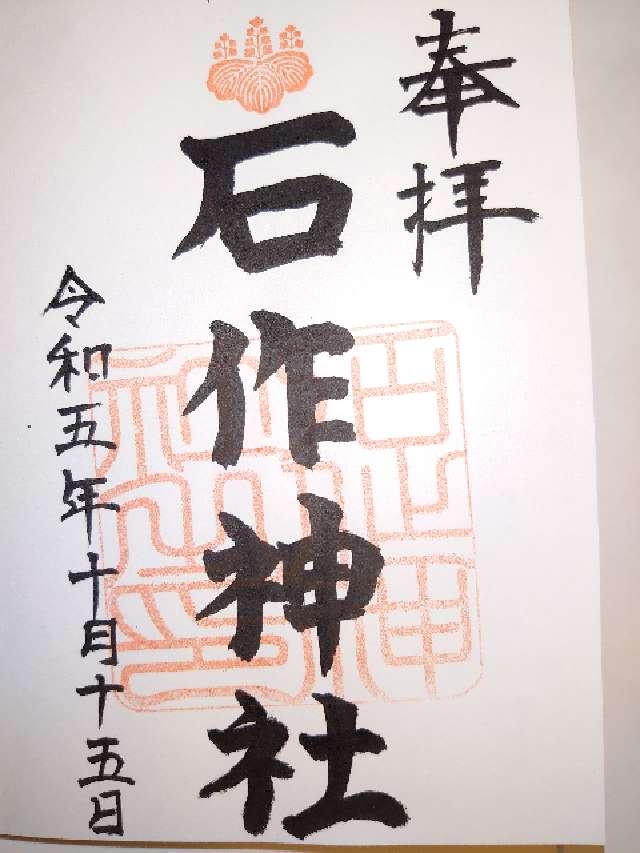 奉拝
石作神社
令和五年十月十五日